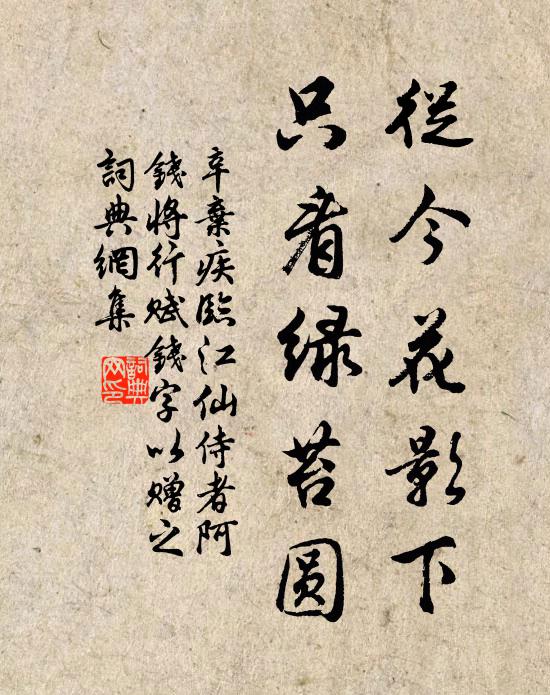 從今花影下
只看绿苔圆
辛棄疾臨江仙侍者阿
錢將行赋錢字以赠之
詞典網集
詞典
网印